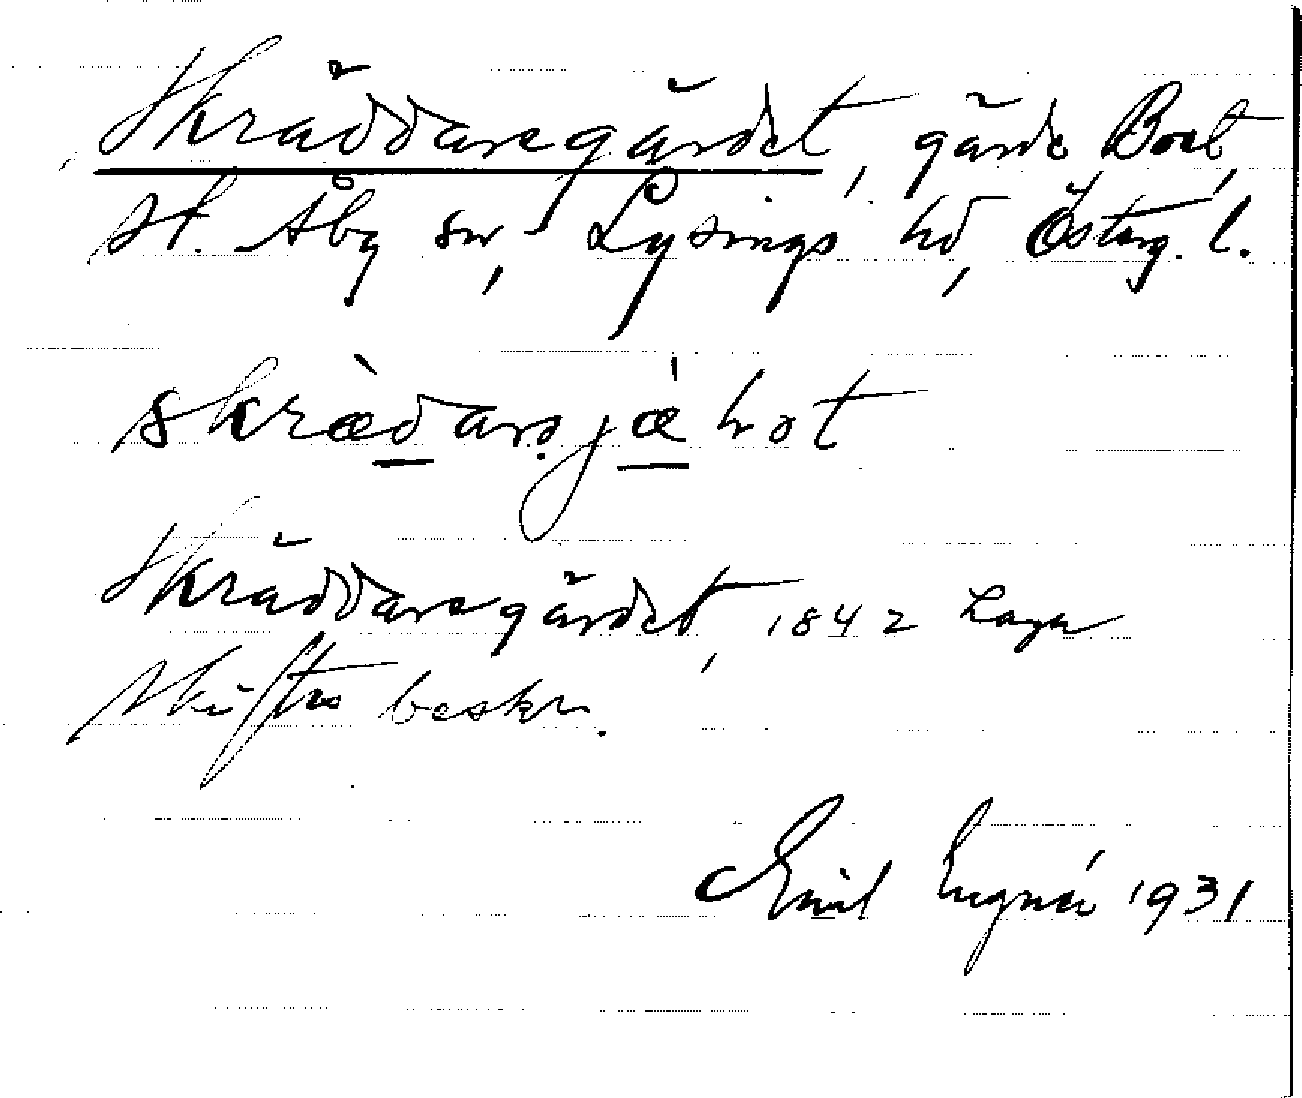 Skräddaregärdet, gärde Boet,
St. Åby sn, Lysings hd, Österg. l.
skræ̀darəjǽhət
Skräddaregärdet, 1842 Laga
skiftes beskr.
Emil 1931